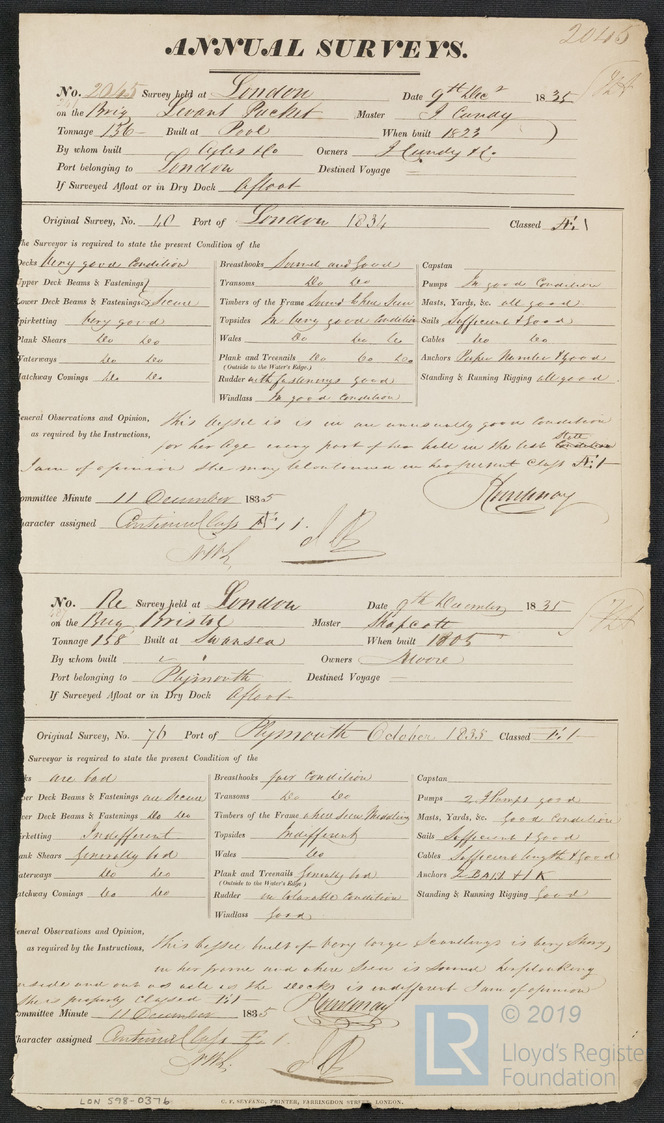 2045
ANNUAL SURVEYS.
No. 2045 Survey held at London Date 9th Decr 1835
on the Brig Levant Packet Master J Cundy
Tonnage 136 Built at Pool When built 1823
By whom built Owners J Cundy & Co
Port belonging to London Destined Voyage
If Surveyed Afloat or in Dry Dock Afloat
Original Survey, No. 40 Port of London 1834 Classed Æ 1
he Surveyor is required to state the present Condition of the
Decks Very good Condition Breasthooks Sound and Good Capstan
Upper Deck Beams & Fastenings Transoms Do Do Pumps In good Condition
Lower Deck Beams & Fastenings Secure Timbers of the Frame Sound where Seen Masts, Yards, &c. all good
Spirketting Very good Topsides In Very good Condition Sails Sufficient & Good
Plank Shears Do Do Wales Do Do Do Cables Do Do
Waterways Do Do Plank and Treenails Do Do Do Anchors Proper Number & good
(Outside to the Water's Edge.)
Hatchway Comings Do Do Rudder with fastenings good Standing & Running Rigging all good
Windlass In good Condition
General Observations and Opinion, This Vessel is in an unusually good Condition
as required by the Instructions, for her Age every part of her hull in the best State
I am of opinion She may be continued in her present Class Æ 1
Committee Minute 11 December 1835
Character assigned Continued Class Æ 1.
No. Re Survey held at London Date 9th December 1835
on the Brig Bristol Master Shapcott
Tonnage 138 Built at Swansea When built 1805
By whom built Owners Moore
Port belonging to Plymouth Destined Voyage
If Surveyed Afloat or in Dry Dock Afloat
Original Survey, No. 76 Port of Plymouth October 1835 Classed E 1
Surveyor is required to state the present Condition of the
ks are bad Breasthooks fair Condition Capstan
per Deck Beams & Fastenings are Secure Transoms Do Do Pumps 2 Pumps good
wer Deck Beams & Fastenings Do Do Timbers of the Frame where Seen Middling Masts, Yards, &c. good Condition
irketting Indifferent Topsides Indifferent Sails Sufficient & Good
ank Shears Generally bad Wales Do Cables Sufficient length & Good
aterways Do Do Plank and Treenails Generally bad Anchors
(Outside to the Water's Edge.)
atchway Comings Do Do Rudder in tolerable Condition Standing & Running Rigging Good
Windlass Good
eneral Observations and Opinion, This Vessel built of Very large Scantlings is Very Strong,
as required by the Instructions, in her frame and where Seen is Sound her planking
inside and out as well as the Decks is indifferent I am of opinion
She is properly Classed E 1
ommittee Minute 11 December 1835
haracter assigned Continued Class E 1.
LON 598-0376
C. F. SEYFANG, PRINTER, FARRINGDON STREET, LONDON.
LR © 2019
Lloyd's Register
Foundation